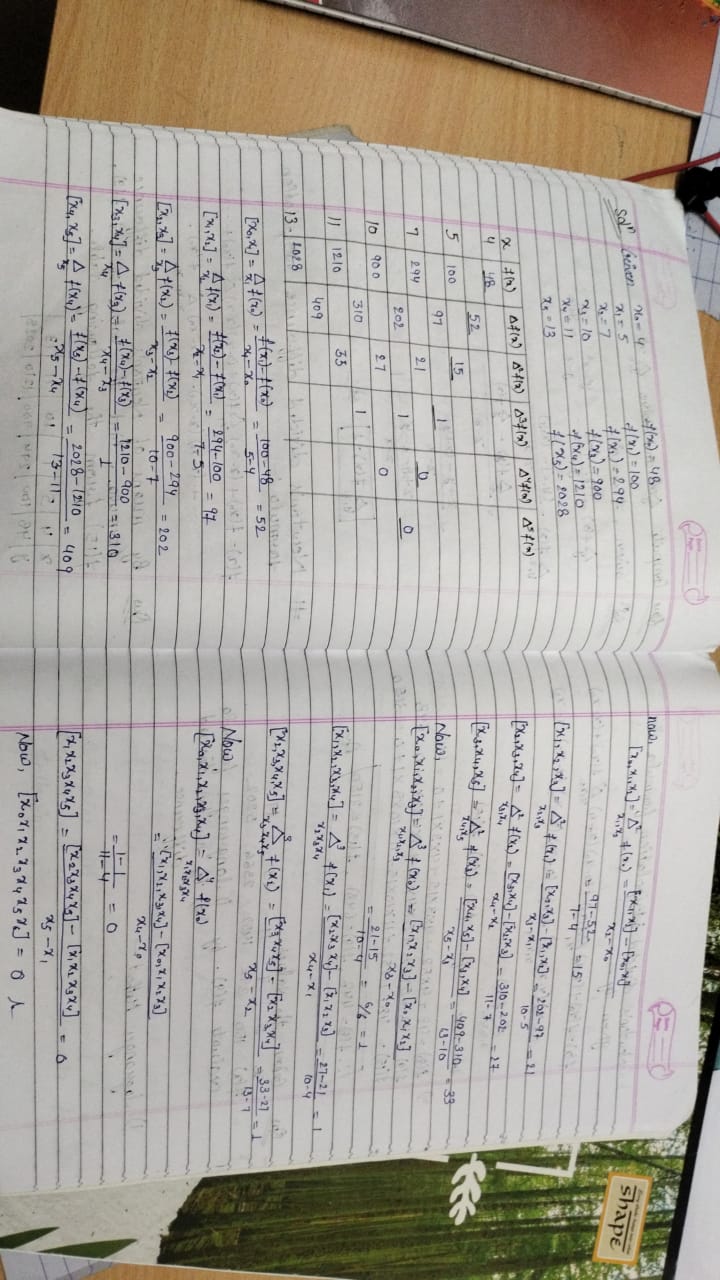 Solⁿ Given x₀ = 4 f(x₀) = 48
x₁ = 5 f(x₁) = 100
x₂ = 7 f(x₂) = 294
x₃ = 10 f(x₃) = 900
x₄ = 11 f(x₄) = 1210
x₅ = 13 f(x₅) = 2028
x f(x) Δf(x) Δ²f(x) Δ³f(x) Δ⁴f(x) Δ⁵f(x)
4 48
52
5 100 15
97 1
7 294 21 0
202 1 0
10 900 27 0
310 1
11 1210 33
409
13 2028
[x₀,x₁] = Δ_x₁ f(x₀) = (f(x₁) - f(x₀))/(x₁ - x₀) = (100-48)/(5-4) = 52
[x₁,x₂] = Δ_x₂ f(x₁) = (f(x₂) - f(x₁))/(x₂ - x₁) = (294-100)/(7-5) = 97
[x₂,x₃] = Δ_x₃ f(x₂) = (f(x₃) - f(x₂))/(x₃ - x₂) = (900-294)/(10-7) = 202
[x₃,x₄] = Δ_x₄ f(x₃) = (f(x₄) - f(x₃))/(x₄ - x₃) = (1210-900)/1 = 310
[x₄,x₅] = Δ_x₅ f(x₄) = (f(x₅) - f(x₄))/(x₅ - x₄) = (2028-1210)/(13-11) = 409
now,
[x₀,x₁,x₂] = Δ²_x₁,x₂ f(x₀) = ([x₁,x₂] - [x₀,x₁])/(x₂ - x₀)
= (97-52)/(7-4) = 15
[x₁,x₂,x₃] = Δ²_x₂,x₃ f(x₁) = ([x₂,x₃] - [x₁,x₂])/(x₃ - x₁) = (202-97)/(10-5) = 21
[x₂,x₃,x₄] = Δ²_x₃,x₄ f(x₂) = ([x₃,x₄] - [x₂,x₃])/(x₄ - x₂) = (310-202)/(11-7) = 27
[x₃,x₄,x₅] = Δ²_x₄,x₅ f(x₃) = ([x₄,x₅] - [x₃,x₄])/(x₅ - x₃) = (409-310)/(13-10) = 33
Now,
[x₀,x₁,x₂,x₃] = Δ³_x₁x₂x₃ f(x₀) = ([x₁,x₂x₃] - [x₀,x₁x₂])/(x₃ - x₀)
= (21-15)/(10-4) = 6/6 = 1
[x₁,x₂,x₃,x₄] = Δ³_x₂x₃x₄ f(x₁) = ([x₂x₃x₄] - [x₁x₂x₃])/(x₄ - x₁) = (27-21)/(10-4) = 1
[x₂,x₃,x₄,x₅] = Δ³_x₃x₄x₅ f(x₂) = ([x₃x₄x₅] - [x₂x₃x₄])/(x₅ - x₂) = (33-27)/(13-7) = 1
Now
[x₀,x₁,x₂,x₃,x₄] = Δ⁴_x₁x₂x₃x₄ f(x₀)
= ([x₁,x₂,x₃x₄] - [x₀,x₁x₂x₃])/(x₄ - x₀)
= (1-1)/(11-4) = 0
[x₁x₂x₃x₄x₅] = ([x₂x₃x₄x₅] - [x₁x₂x₃x₄])/(x₅ - x₁) = 0
Now, [x₀x₁x₂x₃x₄x₅x₆] = 0
shape